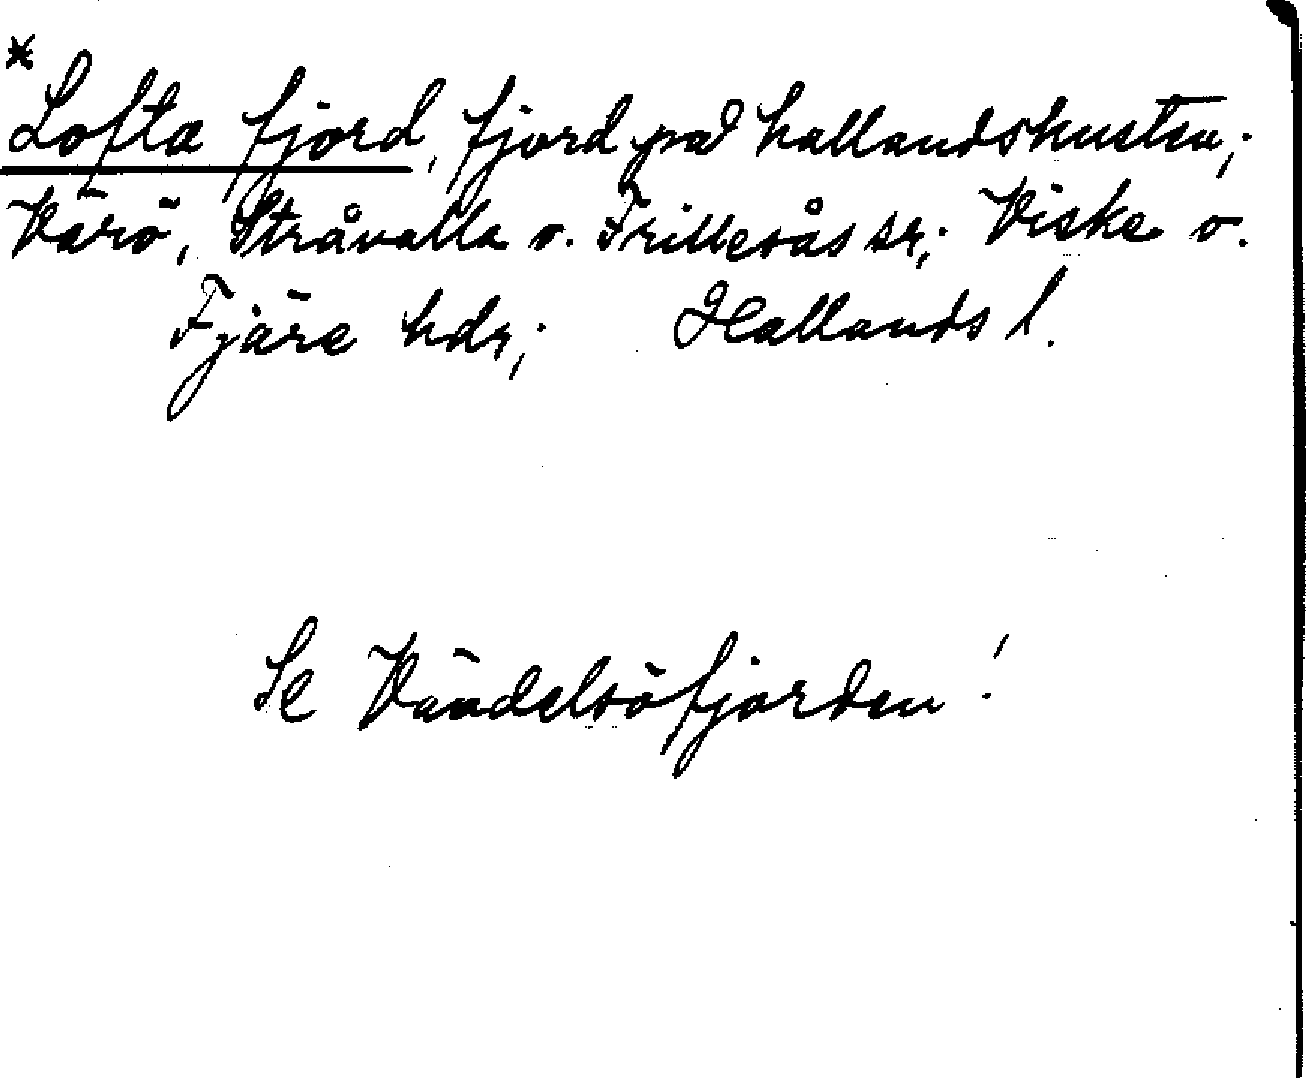 *
Lofta fjord, fjord på hallandskusten;
Värö, Stråvalla o. Frillesås sr; Viske o.
Fjäre hdr; Hallands l.
Se Vändelsöfjorden!